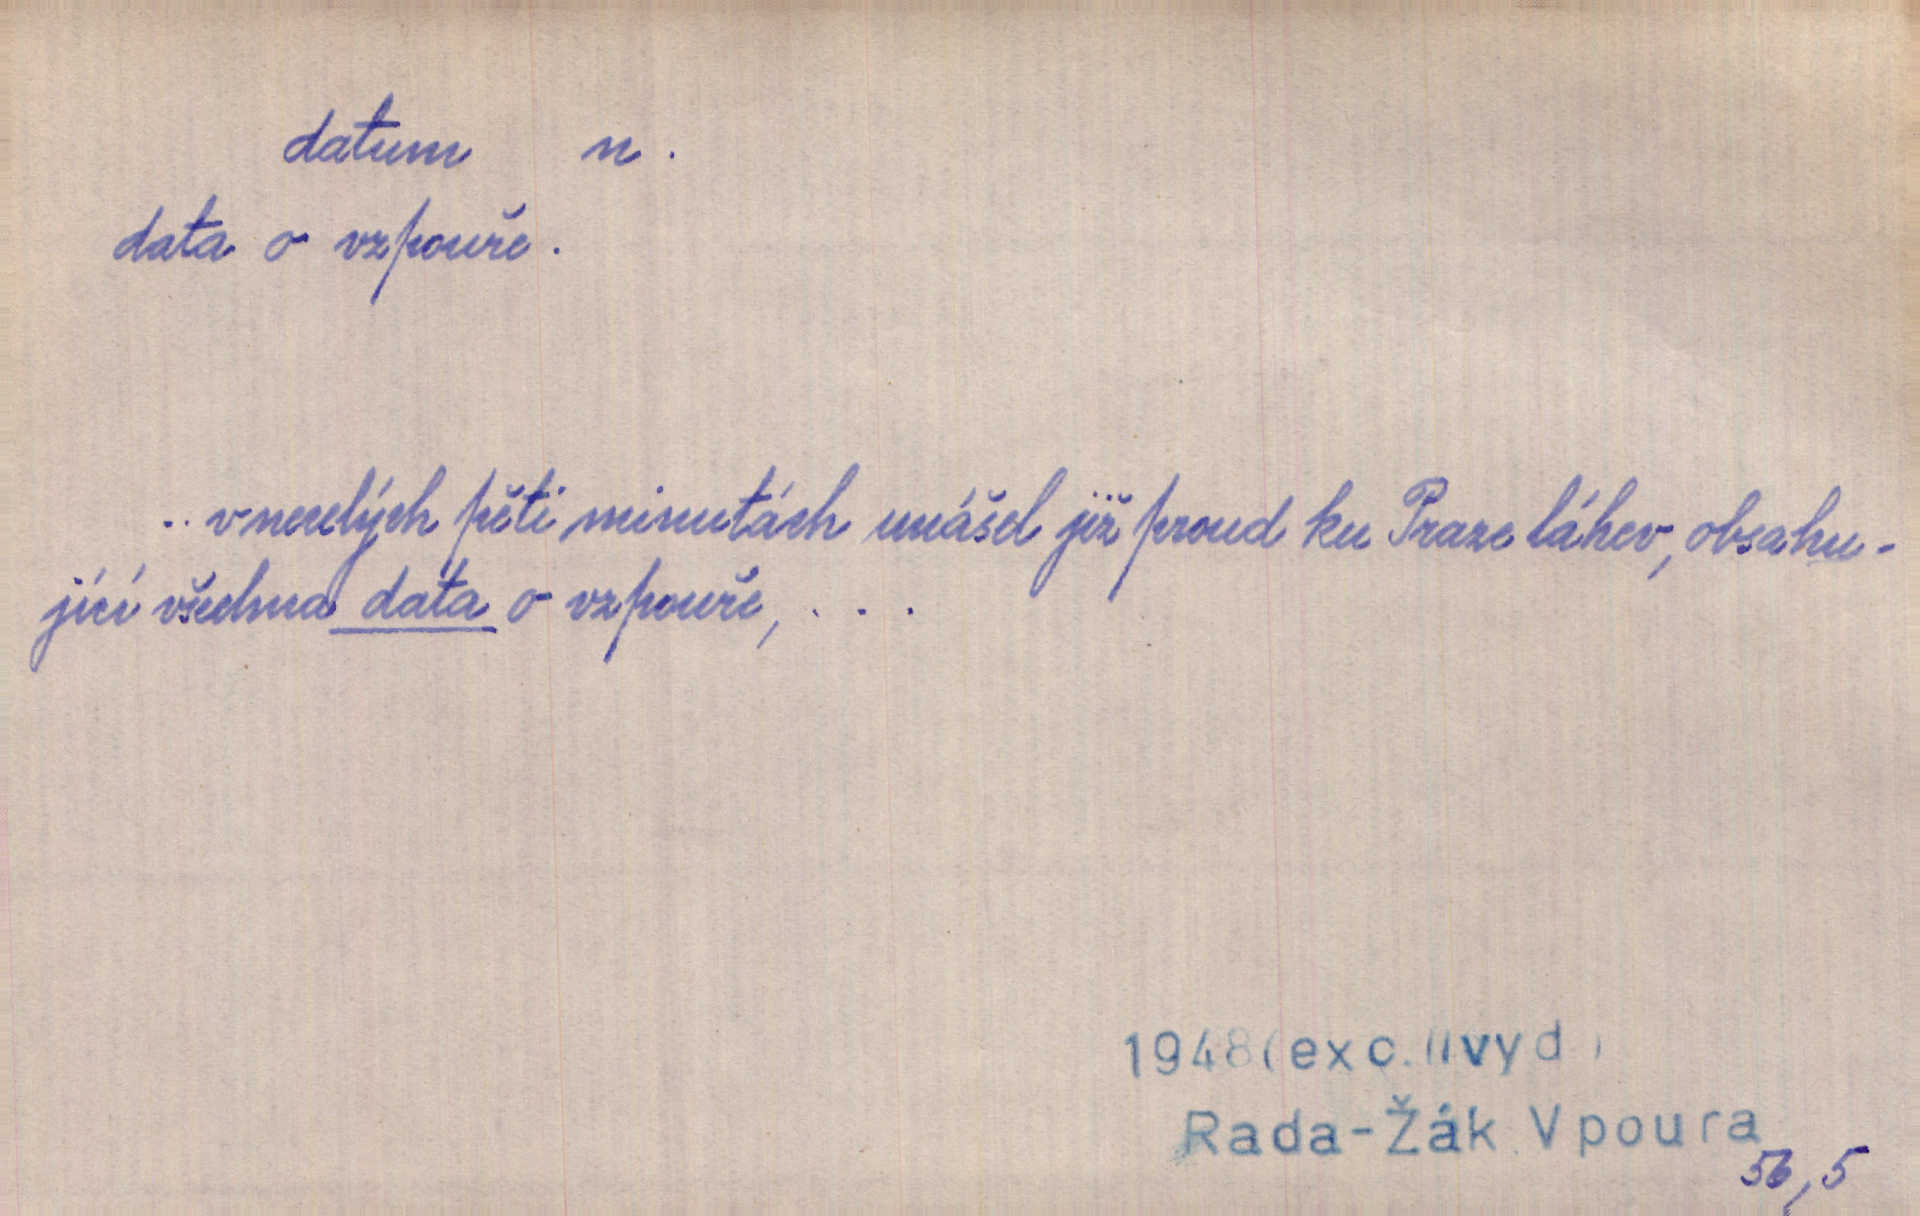 datum n.
data o vzpouře.
.. v necelých pěti minutách unášel již proud ku Praze láhev, obsahu-
jící všechna data o vzpouře, . . .
1948 (exc. II vyd)
Rada-Žák Vpoura
56,5